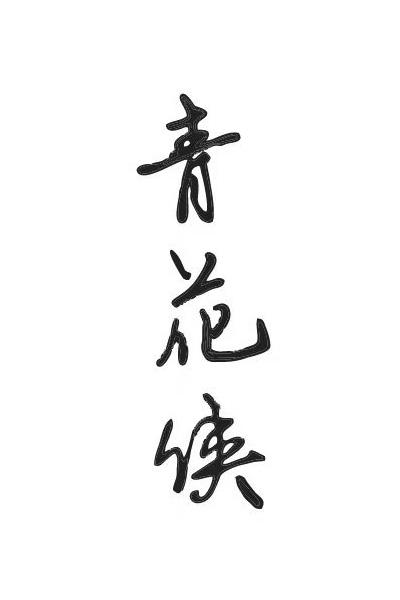 青花侠